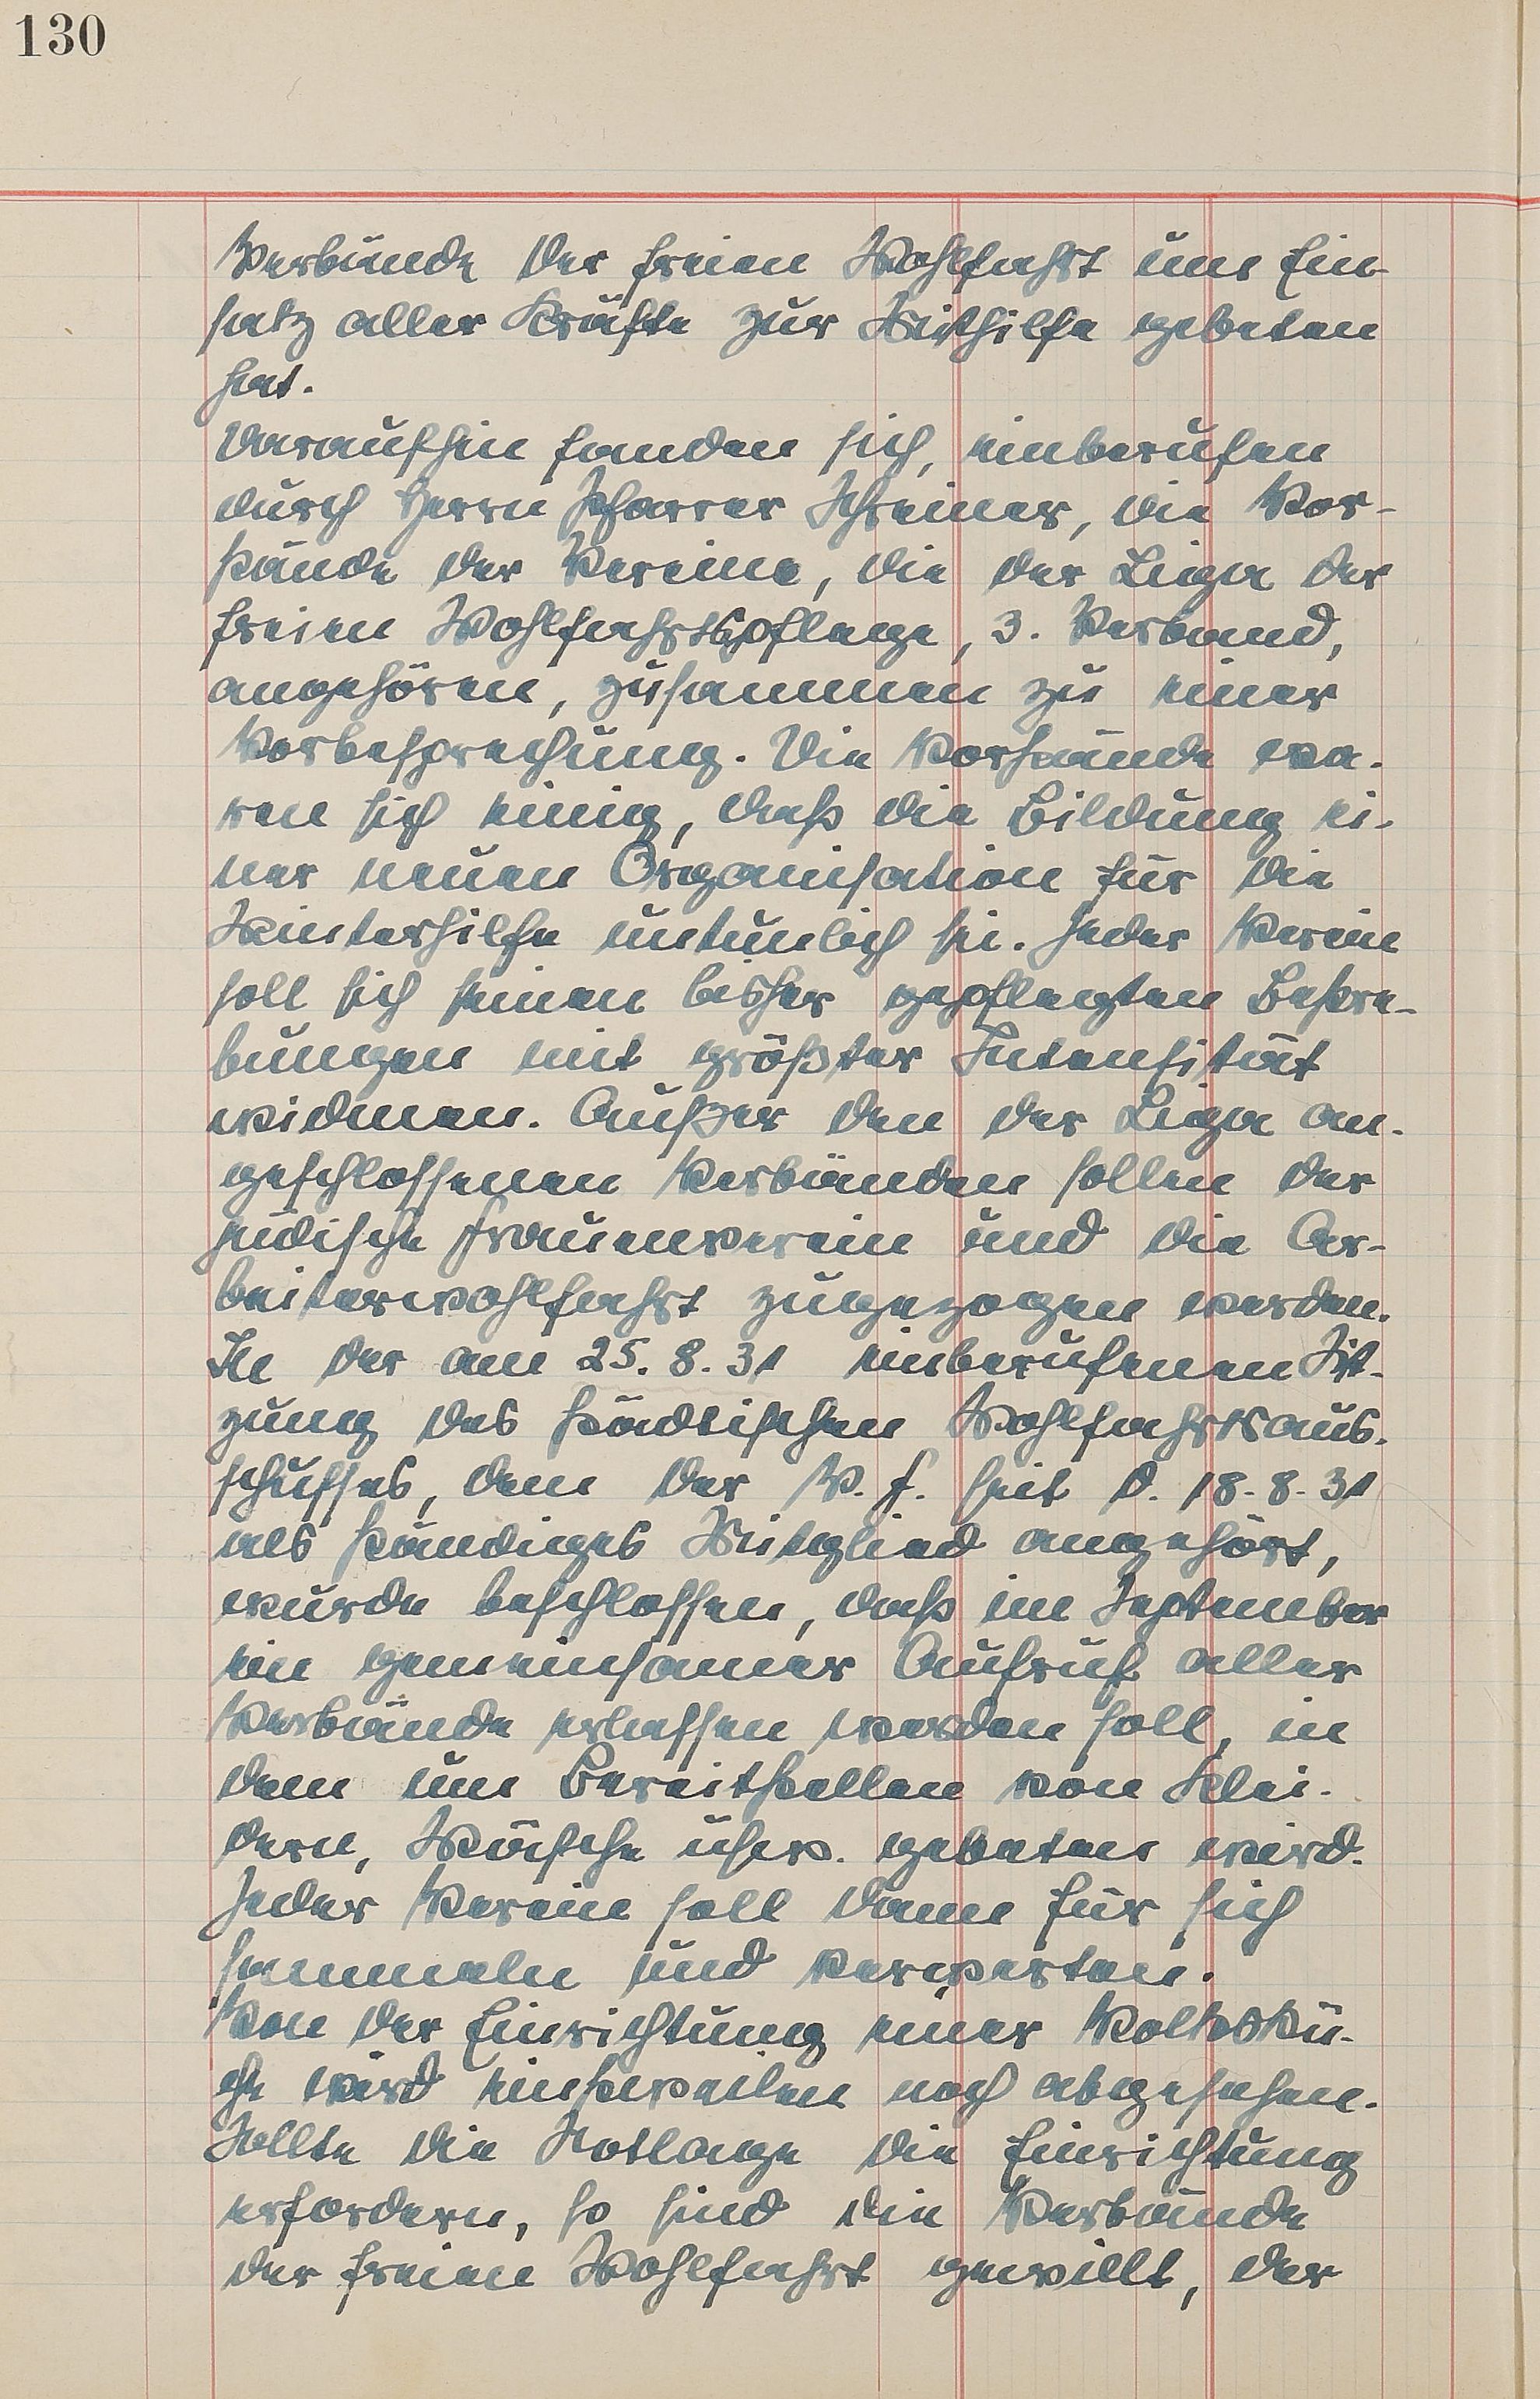 130
Verbände der freien Wohlfahrt um Ein-
satz aller Kräfte zur Mithilfe gebeten
hat.
Daraufhin fanden sich, einberufen
durch Herrn Pfarrer Schreiner, die Vor-
stände der Vereine, die der Liga der
freien Wohlfahrtspflege, 3. Verband,
angehören, zusammen zu einer
Vorbesprechung. Die Vorstände wa-
ren sich einig, daß die Bildung ei-
ner neuen Organisation für die
Winterhilfe untunlich sei. Jeder Verein
soll sich seinen bisher gepflegten Bestre-
bungen mit größter Intensität
widmen. Außer den der Liga an-
geschlossenen Verbänden sollen der
jüdische Frauenverein und die Ar-
beiterwohlfahrt zugezogen werden.
In der am 25. 8. 31 einberufenen Sit-
zung des städtischen Wohlfahrtsaus-
schusses, dem der V. F. seit d. 18. 8. 31
als ständiges Mitglied angehört,
wurde beschlossen, daß im September
ein gemeinsamer Aufruf aller
Verbände erlassen werden soll, in
dem um Bereitstellen von Klei-
dern, Wäsche usw. gebeten wird.
Jeder Verein soll dann für sich
sammeln und verwerten.
Von der Einrichtung einer Volkskü-
che wird einstweilen noch abgesehen.
Sollte die Notlage die Einrichtung
erfordern, so sind die Verbände
der freien Wohlfahrt gewillt, der